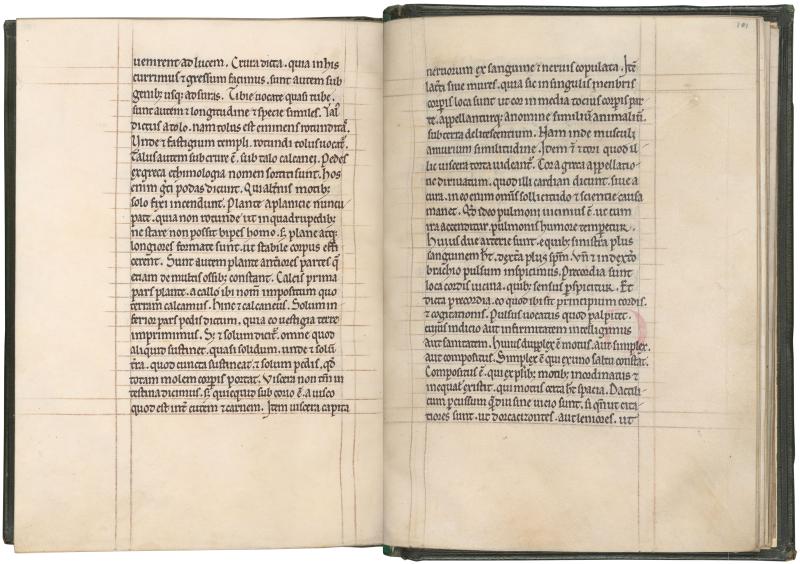 uenirent ad lucem. Crura dicta. quia in his
currimus ⁊ gressum facimus. sunt autem sub
genib; usq; ad suras. Tibie uocate quasi tube.
sunt autem ⁊ longitudine ⁊ specie similes. Tal᷒
dictus a tolo. nam tolus est eminens rotunditaˢ.
Unde ⁊ fastigium templi. rotundi tolus uocat᷑.
Talus autem sub crure ē. sub talo calcanei. Pedes
ex greca ethimologia nomen sortiti sunt. Hos
enim g̃ci podas dicunt. Qui alt̃nis motib;
solo fixi incendunt. Plante a planicie nuncu
pate. quia non rotunde ut in quadrupedib;
ne stare non possit bipes homo. s; plane atq;
longiores formate sunt. ut stabile corpus effi
cerent. Sunt autem plante ant̃iores partes q̃
etiam de multis ossib; constant. Calcis prima
pars plante. a callo ibi nom̃ impositum quo
terram calcamus. Hinc ⁊ calcaneus. Solum in
ferior pars pedis dictum. quia eo uestigia terre
imprimimus. S; ⁊ solum dicit᷑. omne quod
aliquid sustinet. quasi solidum. unde ⁊ solū
t̃ra. quod cuncta sustineat. ⁊ solum pedis. qd̃
totam molem corp̃is portat. Viscera non tm̃ in
testina dicimus. s; quicquid sub corio ē. a uisco
quod est int̃ cutem ⁊ carnem. Item uiscera capita
101
neruorum ex sanguine ⁊ neruis copulata. Itē
lac̃ti siue mures. quia sic in singulis menbris
corp̃is loca sunt ut cor in media tocius corp̃is par
te. appellanturq; a nomine similiū animaliū.
sub terra delitescentium. Nam inde musculi
a murium similitudine. Idem ⁊ tori quod il
lic uiscera torta uideant᷑. Cor a greca appellatio
ne diriuatum. quod illi cardian dicunt. siue a
cura. in eo enim om̃is sollicitudo ⁊ scientie causa
manet. Qd̃ ideo pulmoni uicinus ē. ut cum
ira accenditur. pulmonis humore temperetur.
Huius due arterie sunt. e quib; sinist̃a plus
sanguinem h̃t. dext̃a plus sp̃m. Vn̄ ⁊ in dext̃o
brachio pulsum inspicimus. Precordia sunt
loca cordis uicina. quib; sensus p̃spicitur. Et
dicta precordia. eo quod ibi sit principium cordis.
⁊ cogitationis. Pulsus uocatus quod palpitet.
cuius indicio aut infirmitatem intelligimus
aut sanitatem. Huius dupplex ē motus. aut simplex.
aut compositus. Simplex ē qui ex uno saltu constat.
Compositus ē. qui ex plib; motib; inordinatis ⁊
inequal᷒ existit. qui motus certa h̃t spacia. Dactili
cum percussum q̃diu sine uicio sunt. si qñ ut cita
tiores sunt. ut dorcacizontes. aut leniores. ut